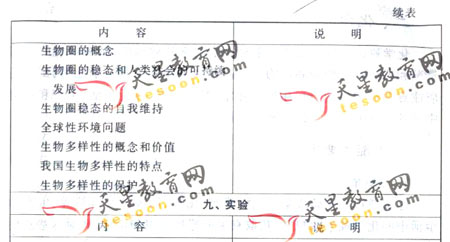 续表
内 容 说 明
生物圈的概念
生物圈的稳态和人类社会的可持续
发展
生物圈稳态的自我维持
全球性环境问题
生物多样性的概念和价值
我国生物多样性的特点
生物多样性的保护
九、实验
内 容 说 明
天星教育网
tesoon.com
天星教育网
tesoon.com
天星教育网
tesoon.com
天星教育网
tesoon.com